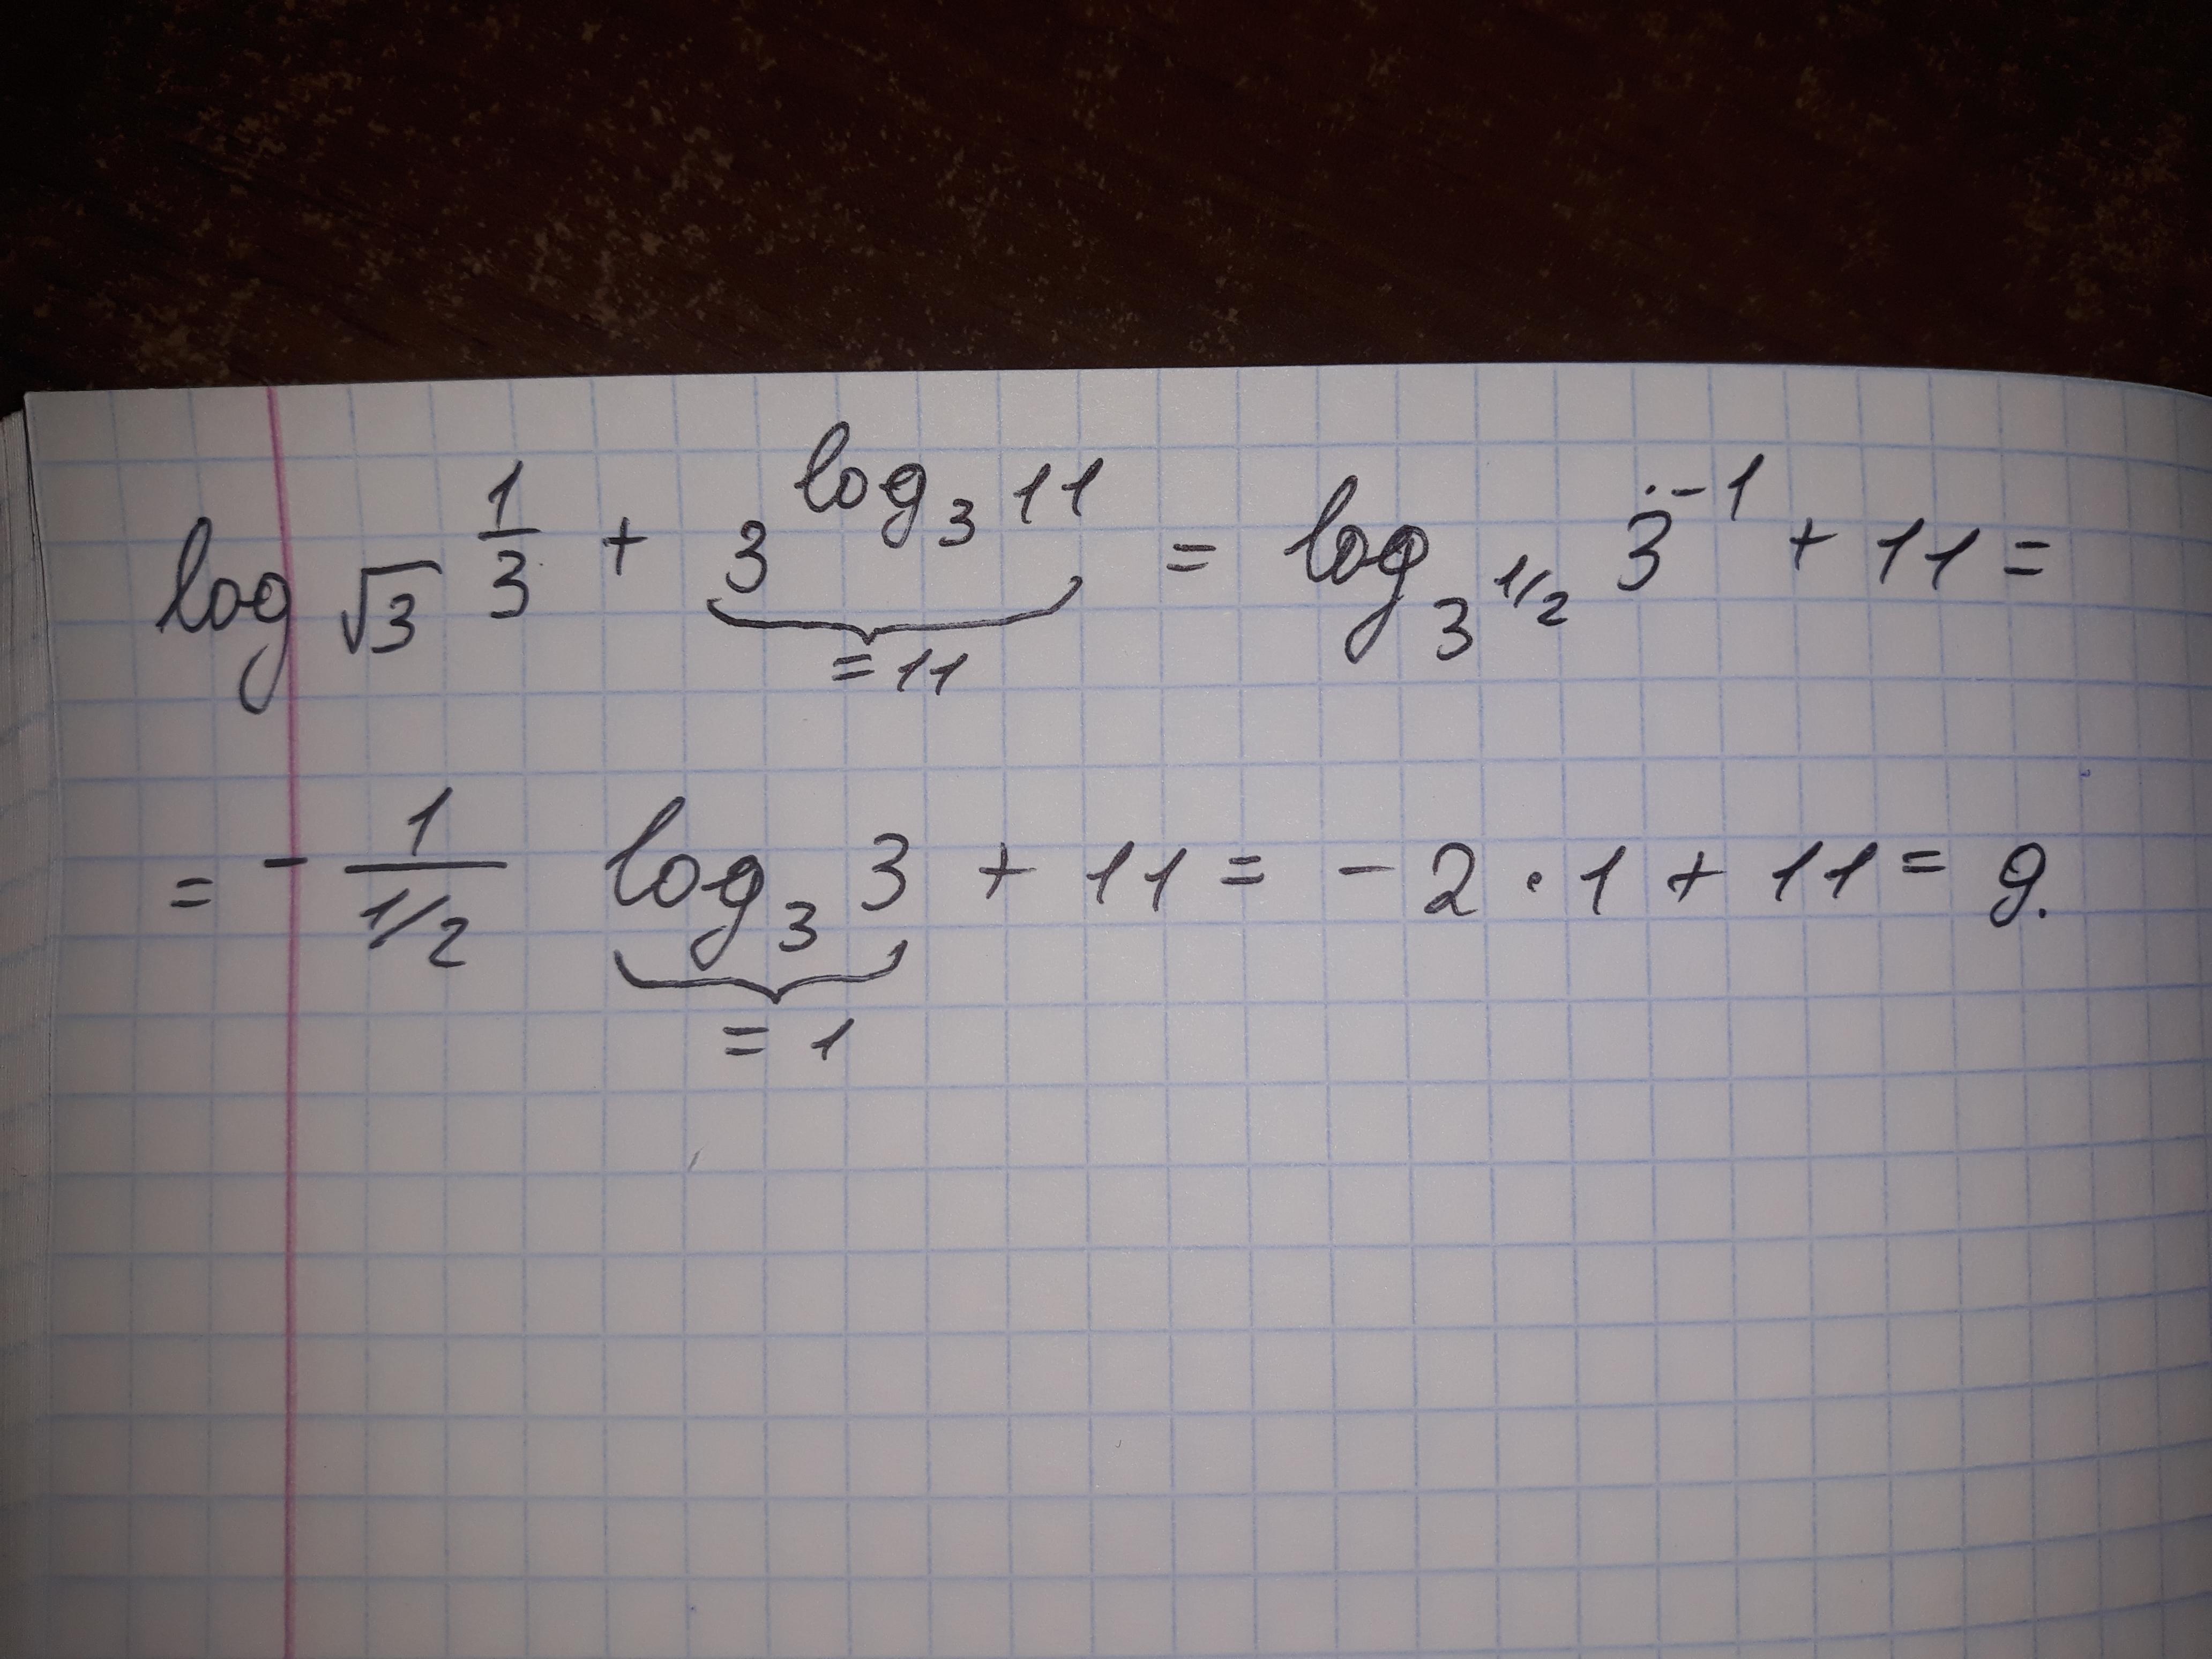 log_{√3} 1/3 + 3^{log_3 11} = log_{3^{1/2}} 3^{-1} + 11 =
= 11
= - 1/(1/2) log_3 3 + 11 = - 2 · 1 + 11 = 9.
= 1